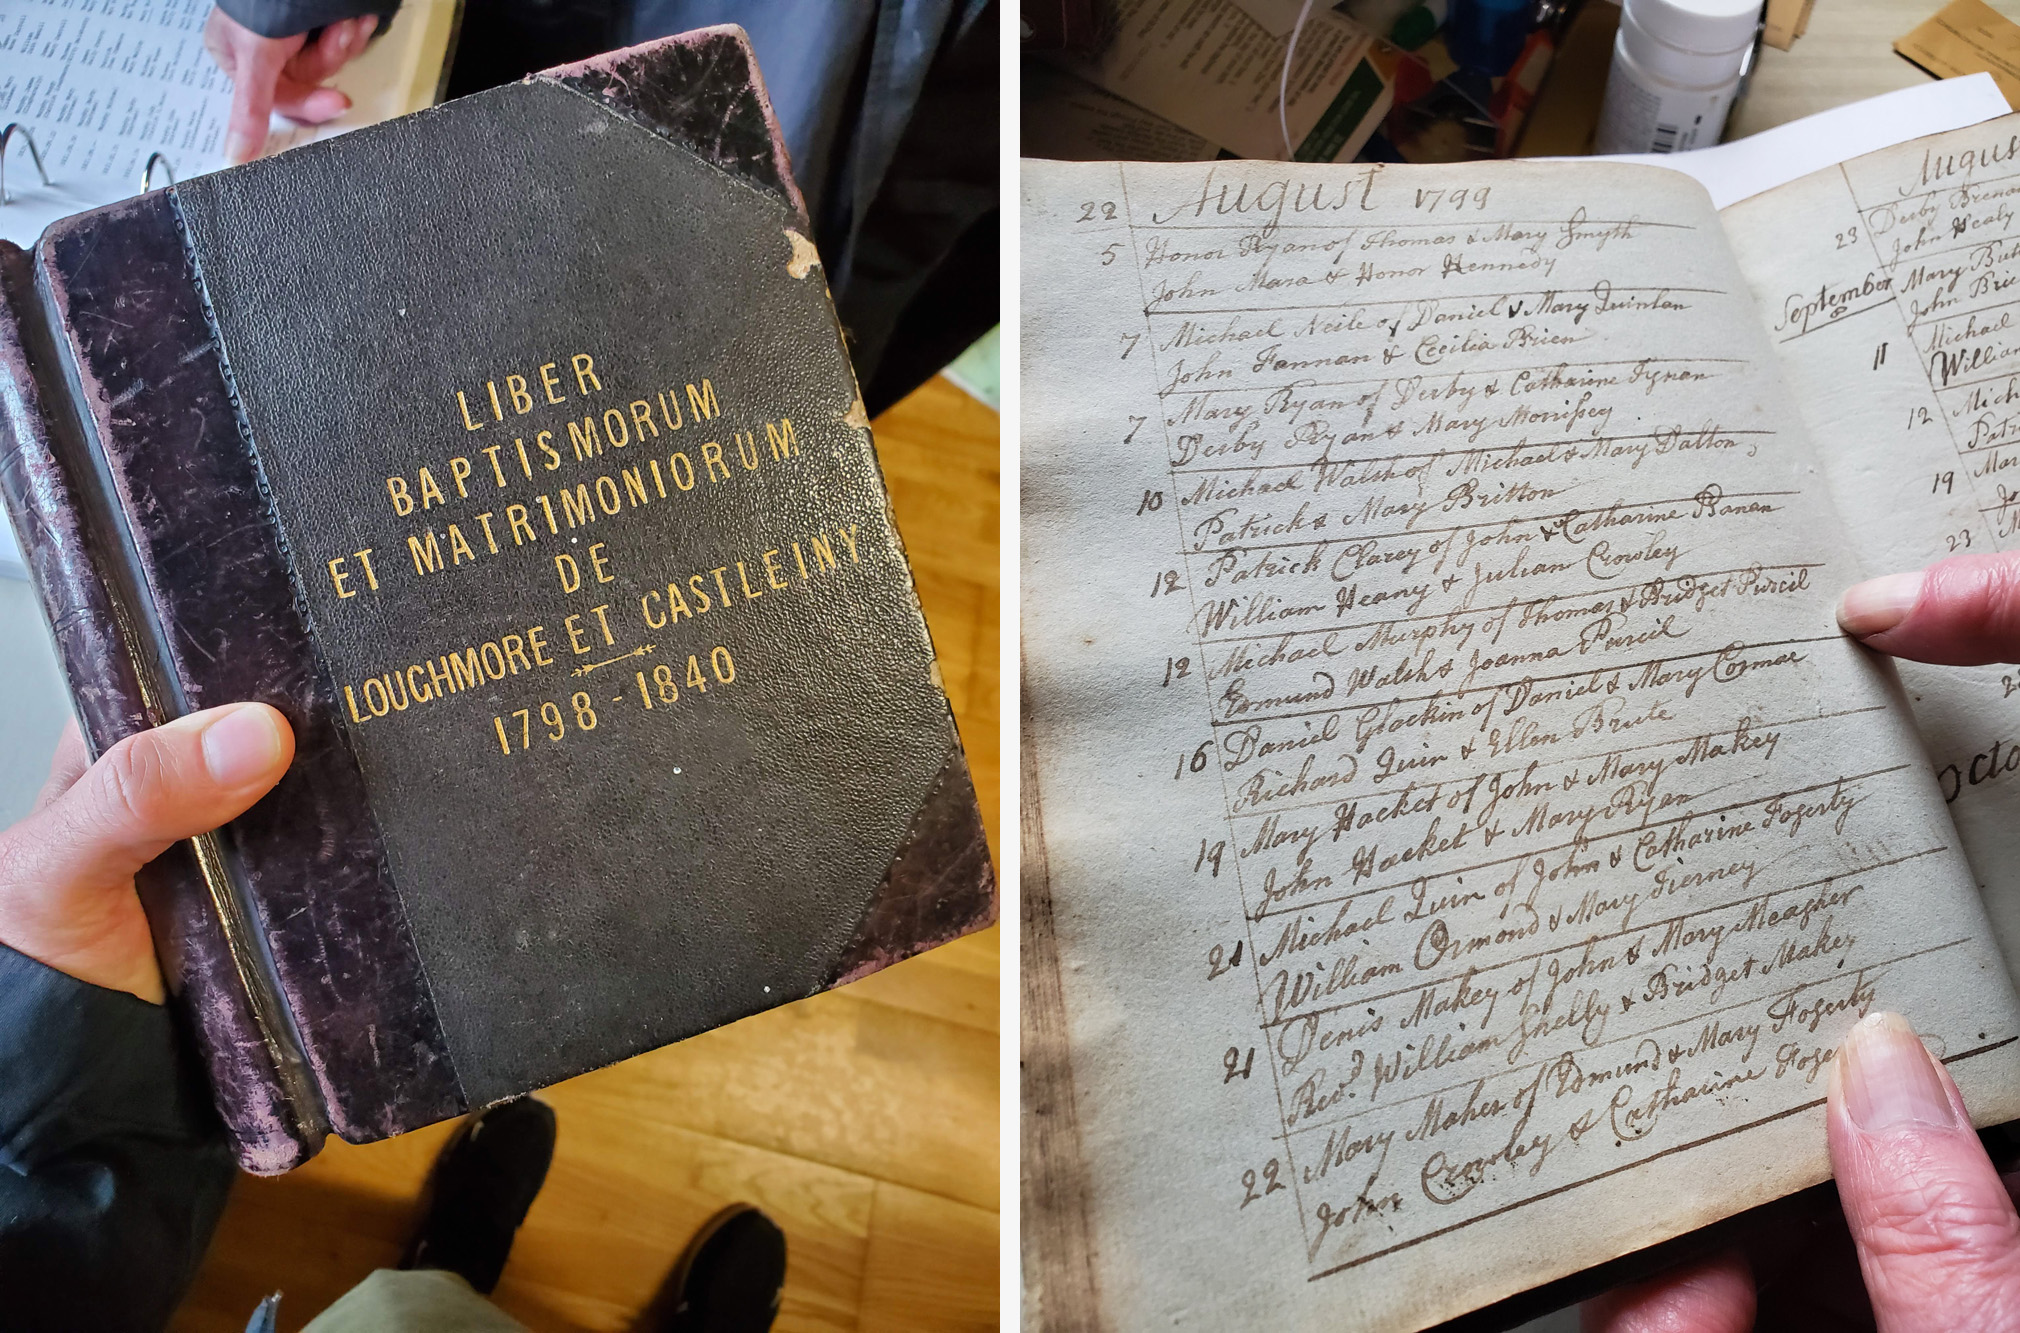 LIBER
BAPTISMORUM
ET MATRIMONIORUM
DE
LOUGHMORE ET CASTLEINY
1798-1840
22 August 1799
5 Honor Ryan of Thomas & Mary Smyth
John Mara & Honor Kennedy
7 Michael Neile of Daniel & Mary Quinlan
John Fannan & Cecilia Brien
7 Mary Ryan of Derby & Catharine Tynan
Derby Ryan & Mary Morrissey
10 Michael Walsh of Michael & Mary Dalton
Patrick & Mary Britton
12 Patrick Clarey of John & Catharine Banan
William Heany & Julian Crowley
12 Michael Murphy of Thomas & Bridget Purcil
Edmund Walsh & Joanna Purcil
16 Daniel Glackin of Daniel & Mary Cormac
Richard Quin & Ellen Brute
19 Mary Hacket of John & Mary Makey
John Hacket & Mary Ryan
21 Michael Quin of John & Catharine Fogerty
William Ormond & Mary Tierney
21 Denis Makey of John & Mary Meagher
Revd. William Shelly & Bridget Makey
22 Mary Maher of Edmund & Mary Fogerty
John Crowley & Catharine
August
23 Derby
John Healy
September 8 Mary
John
11 Michael
William
12
19
23